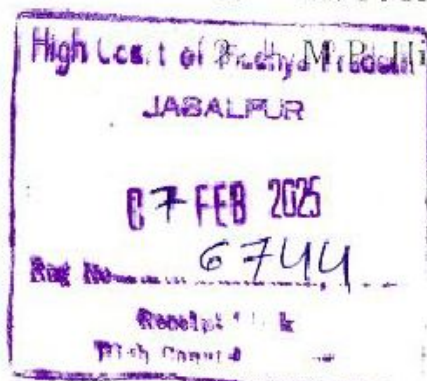 High Court of Madhya Pradesh
JABALPUR
07 FEB 2025
Reg No 6744
Receipt Clerk
High Court